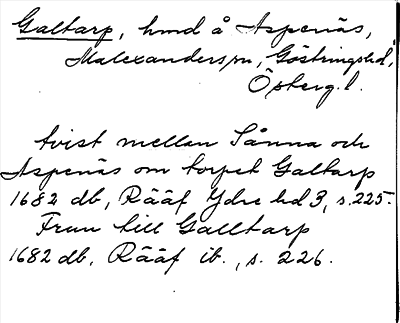 Galtarp, hmd å Aspenäs,
Malexanders sn, Göstringshd,
Österg.l.
tvist mellan Sånna och
Aspenäs om torpet Galtarp
1682 db, Rääf Ydre hd 3, s. 225.
Frun till Galltarp
1682 db. Rääf ib., s. 226.